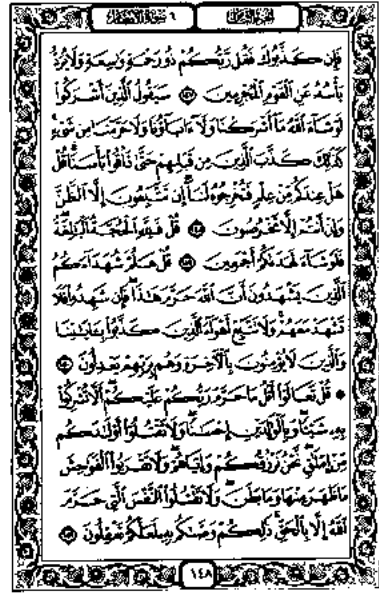 الجزء الثامن ٦ سورة الأنعام
فَإِن كَذَّبُوكَ فَقُل رَّبُّكُمْ ذُو رَحْمَةٍ وَٰسِعَةٍ وَلَا يُرَدُّ
بَأْسُهُۥ عَنِ ٱلْقَوْمِ ٱلْمُجْرِمِينَ ١٤٧ سَيَقُولُ ٱلَّذِينَ أَشْرَكُوا۟
لَوْ شَآءَ ٱللَّهُ مَآ أَشْرَكْنَا وَلَآ ءَابَآؤُنَا وَلَا حَرَّمْنَا مِن شَىْءٍ
كَذَٰلِكَ كَذَّبَ ٱلَّذِينَ مِن قَبْلِهِمْ حَتَّىٰ ذَاقُوا۟ بَأْسَنَا قُلْ
هَلْ عِندَكُم مِّنْ عِلْمٍ فَتُخْرِجُوهُ لَنَآ إِن تَتَّبِعُونَ إِلَّا ٱلظَّنَّ
وَإِنْ أَنتُمْ إِلَّا تَخْرُصُونَ ١٤٨ قُلْ فَلِلَّهِ ٱلْحُجَّةُ ٱلْبَٰلِغَةُ
فَلَوْ شَآءَ لَهَدَىٰكُمْ أَجْمَعِينَ ١٤٩ قُلْ هَلُمَّ شُهَدَآءَكُمُ
ٱلَّذِينَ يَشْهَدُونَ أَنَّ ٱللَّهَ حَرَّمَ هَٰذَا فَإِن شَهِدُوا۟ فَلَا
تَشْهَدْ مَعَهُمْ وَلَا تَتَّبِعْ أَهْوَآءَ ٱلَّذِينَ كَذَّبُوا۟ بِـَٔايَٰتِنَا
وَٱلَّذِينَ لَا يُؤْمِنُونَ بِٱلْـَٔاخِرَةِ وَهُم بِرَبِّهِمْ يَعْدِلُونَ ١٥٠
۞ قُلْ تَعَالَوْا۟ أَتْلُ مَا حَرَّمَ رَبُّكُمْ عَلَيْكُمْ أَلَّا تُشْرِكُوا۟
بِهِۦ شَيْـًٔا وَبِٱلْوَٰلِدَيْنِ إِحْسَٰنًا وَلَا تَقْتُلُوٓا۟ أَوْلَٰدَكُم
مِّنْ إِمْلَٰقٍ نَّحْنُ نَرْزُقُكُمْ وَإِيَّاهُمْ وَلَا تَقْرَبُوا۟ ٱلْفَوَٰحِشَ
مَا ظَهَرَ مِنْهَا وَمَا بَطَنَ وَلَا تَقْتُلُوا۟ ٱلنَّفْسَ ٱلَّتِى حَرَّمَ
ٱللَّهُ إِلَّا بِٱلْحَقِّ ذَٰلِكُمْ وَصَّىٰكُم بِهِۦ لَعَلَّكُمْ تَعْقِلُونَ ١٥١
١٤٨